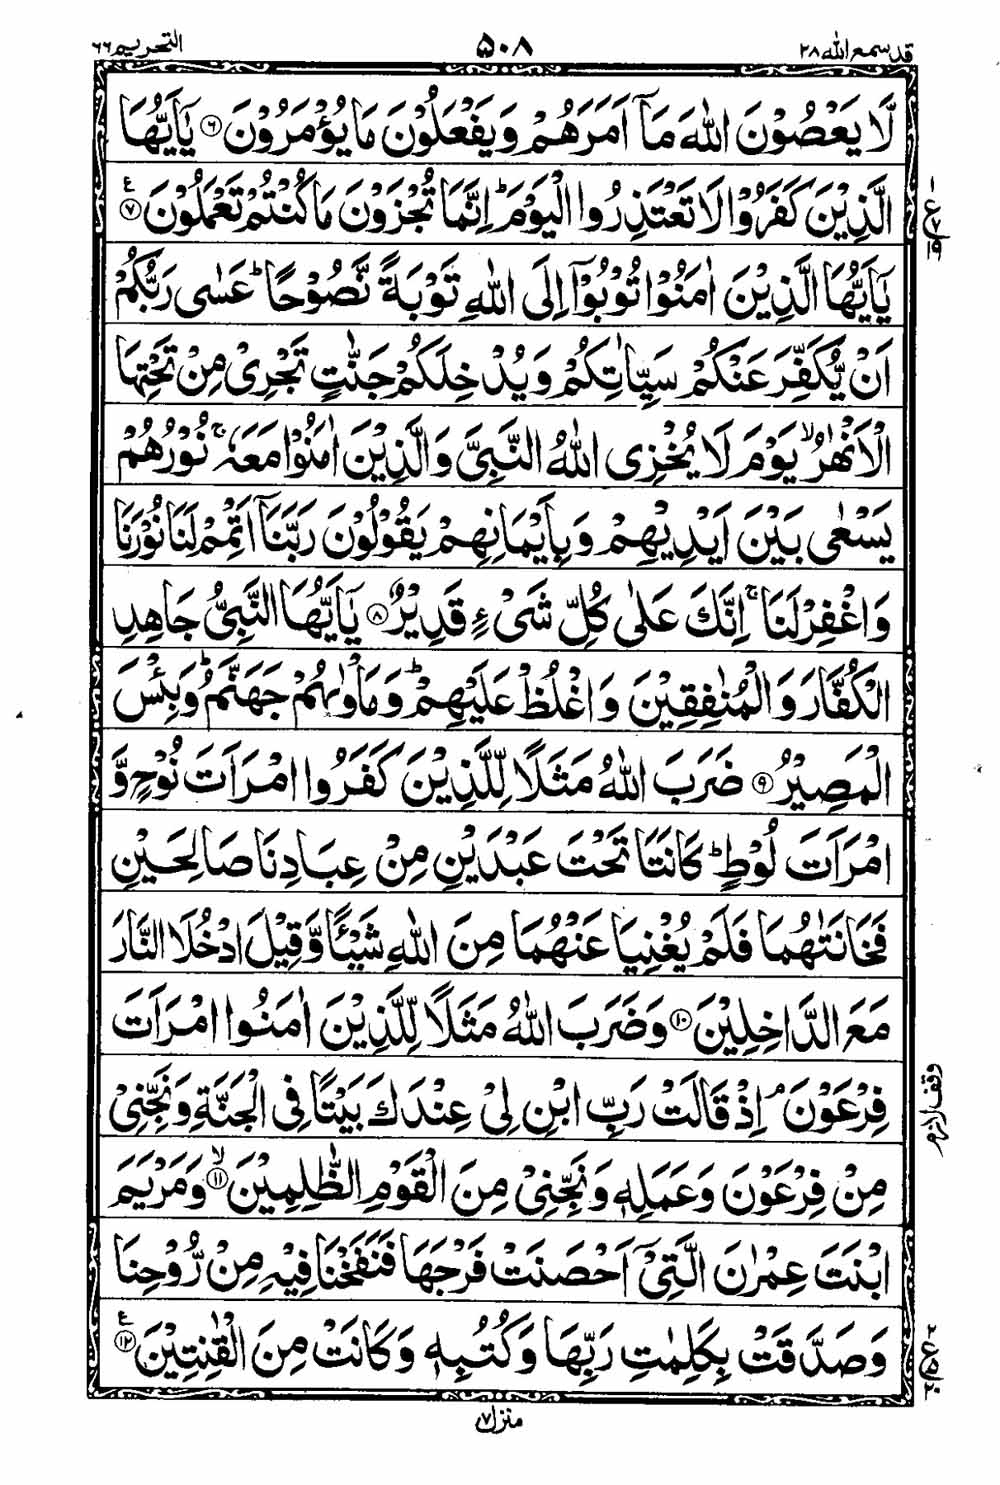 قد سمع الله ۲۸ ۵۰۸ التحریم ۶۶
لَّا يَعْصُوْنَ اللّٰهَ مَاۤ اَمَرَهُمْ وَيَفْعَلُوْنَ مَا يُؤْمَرُوْنَ ۶ يٰۤاَيُّهَا
الَّذِيْنَ كَفَرُوْا لَا تَعْتَذِرُوا الْيَوْمَ ؕ اِنَّمَا تُجْزَوْنَ مَا كُنْتُمْ تَعْمَلُوْنَ ۷ ع
يٰۤاَيُّهَا الَّذِيْنَ اٰمَنُوْا تُوْبُوْۤا اِلَى اللّٰهِ تَوْبَةً نَّصُوْحًا ؕ عَسٰى رَبُّكُمْ
اَنْ يُّكَفِّرَ عَنْكُمْ سَيِّاٰتِكُمْ وَيُدْخِلَكُمْ جَنّٰتٍ تَجْرِيْ مِنْ تَحْتِهَا
الْاَنْهٰرُ ۙ يَوْمَ لَا يُخْزِى اللّٰهُ النَّبِيَّ وَالَّذِيْنَ اٰمَنُوْا مَعَهٗ ۚ نُوْرُهُمْ
يَسْعٰى بَيْنَ اَيْدِيْهِمْ وَبِاَيْمَانِهِمْ يَقُوْلُوْنَ رَبَّنَاۤ اَتْمِمْ لَنَا نُوْرَنَا
وَاغْفِرْ لَنَا ۚ اِنَّكَ عَلٰى كُلِّ شَيْءٍ قَدِيْرٌ ۸ يٰۤاَيُّهَا النَّبِيُّ جَاهِدِ
الْكُفَّارَ وَالْمُنٰفِقِيْنَ وَاغْلُظْ عَلَيْهِمْ ؕ وَمَاْوٰىهُمْ جَهَنَّمُ ؕ وَبِئْسَ
الْمَصِيْرُ ۹ ضَرَبَ اللّٰهُ مَثَلًا لِّلَّذِيْنَ كَفَرُوا امْرَاَتَ نُوْحٍ وَّ
امْرَاَتَ لُوْطٍ ؕ كَانَتَا تَحْتَ عَبْدَيْنِ مِنْ عِبَادِنَا صَالِحَيْنِ
فَخَانَتٰهُمَا فَلَمْ يُغْنِيَا عَنْهُمَا مِنَ اللّٰهِ شَيْـًٔا وَّقِيْلَ ادْخُلَا النَّارَ
مَعَ الدّٰخِلِيْنَ ۱۰ وَضَرَبَ اللّٰهُ مَثَلًا لِّلَّذِيْنَ اٰمَنُوا امْرَاَتَ
فِرْعَوْنَ ۘ اِذْ قَالَتْ رَبِّ ابْنِ لِيْ عِنْدَكَ بَيْتًا فِى الْجَنَّةِ وَنَجِّنِيْ
مِنْ فِرْعَوْنَ وَعَمَلِهٖ وَنَجِّنِيْ مِنَ الْقَوْمِ الظّٰلِمِيْنَ ۙ ۱۱ وَمَرْيَمَ
ابْنَتَ عِمْرٰنَ الَّتِيْۤ اَحْصَنَتْ فَرْجَهَا فَنَفَخْنَا فِيْهِ مِنْ رُّوْحِنَا
وَصَدَّقَتْ بِكَلِمٰتِ رَبِّهَا وَكُتُبِهٖ وَكَانَتْ مِنَ الْقٰنِتِيْنَ ۱۲ ع
وقف لازم
منزل ۷